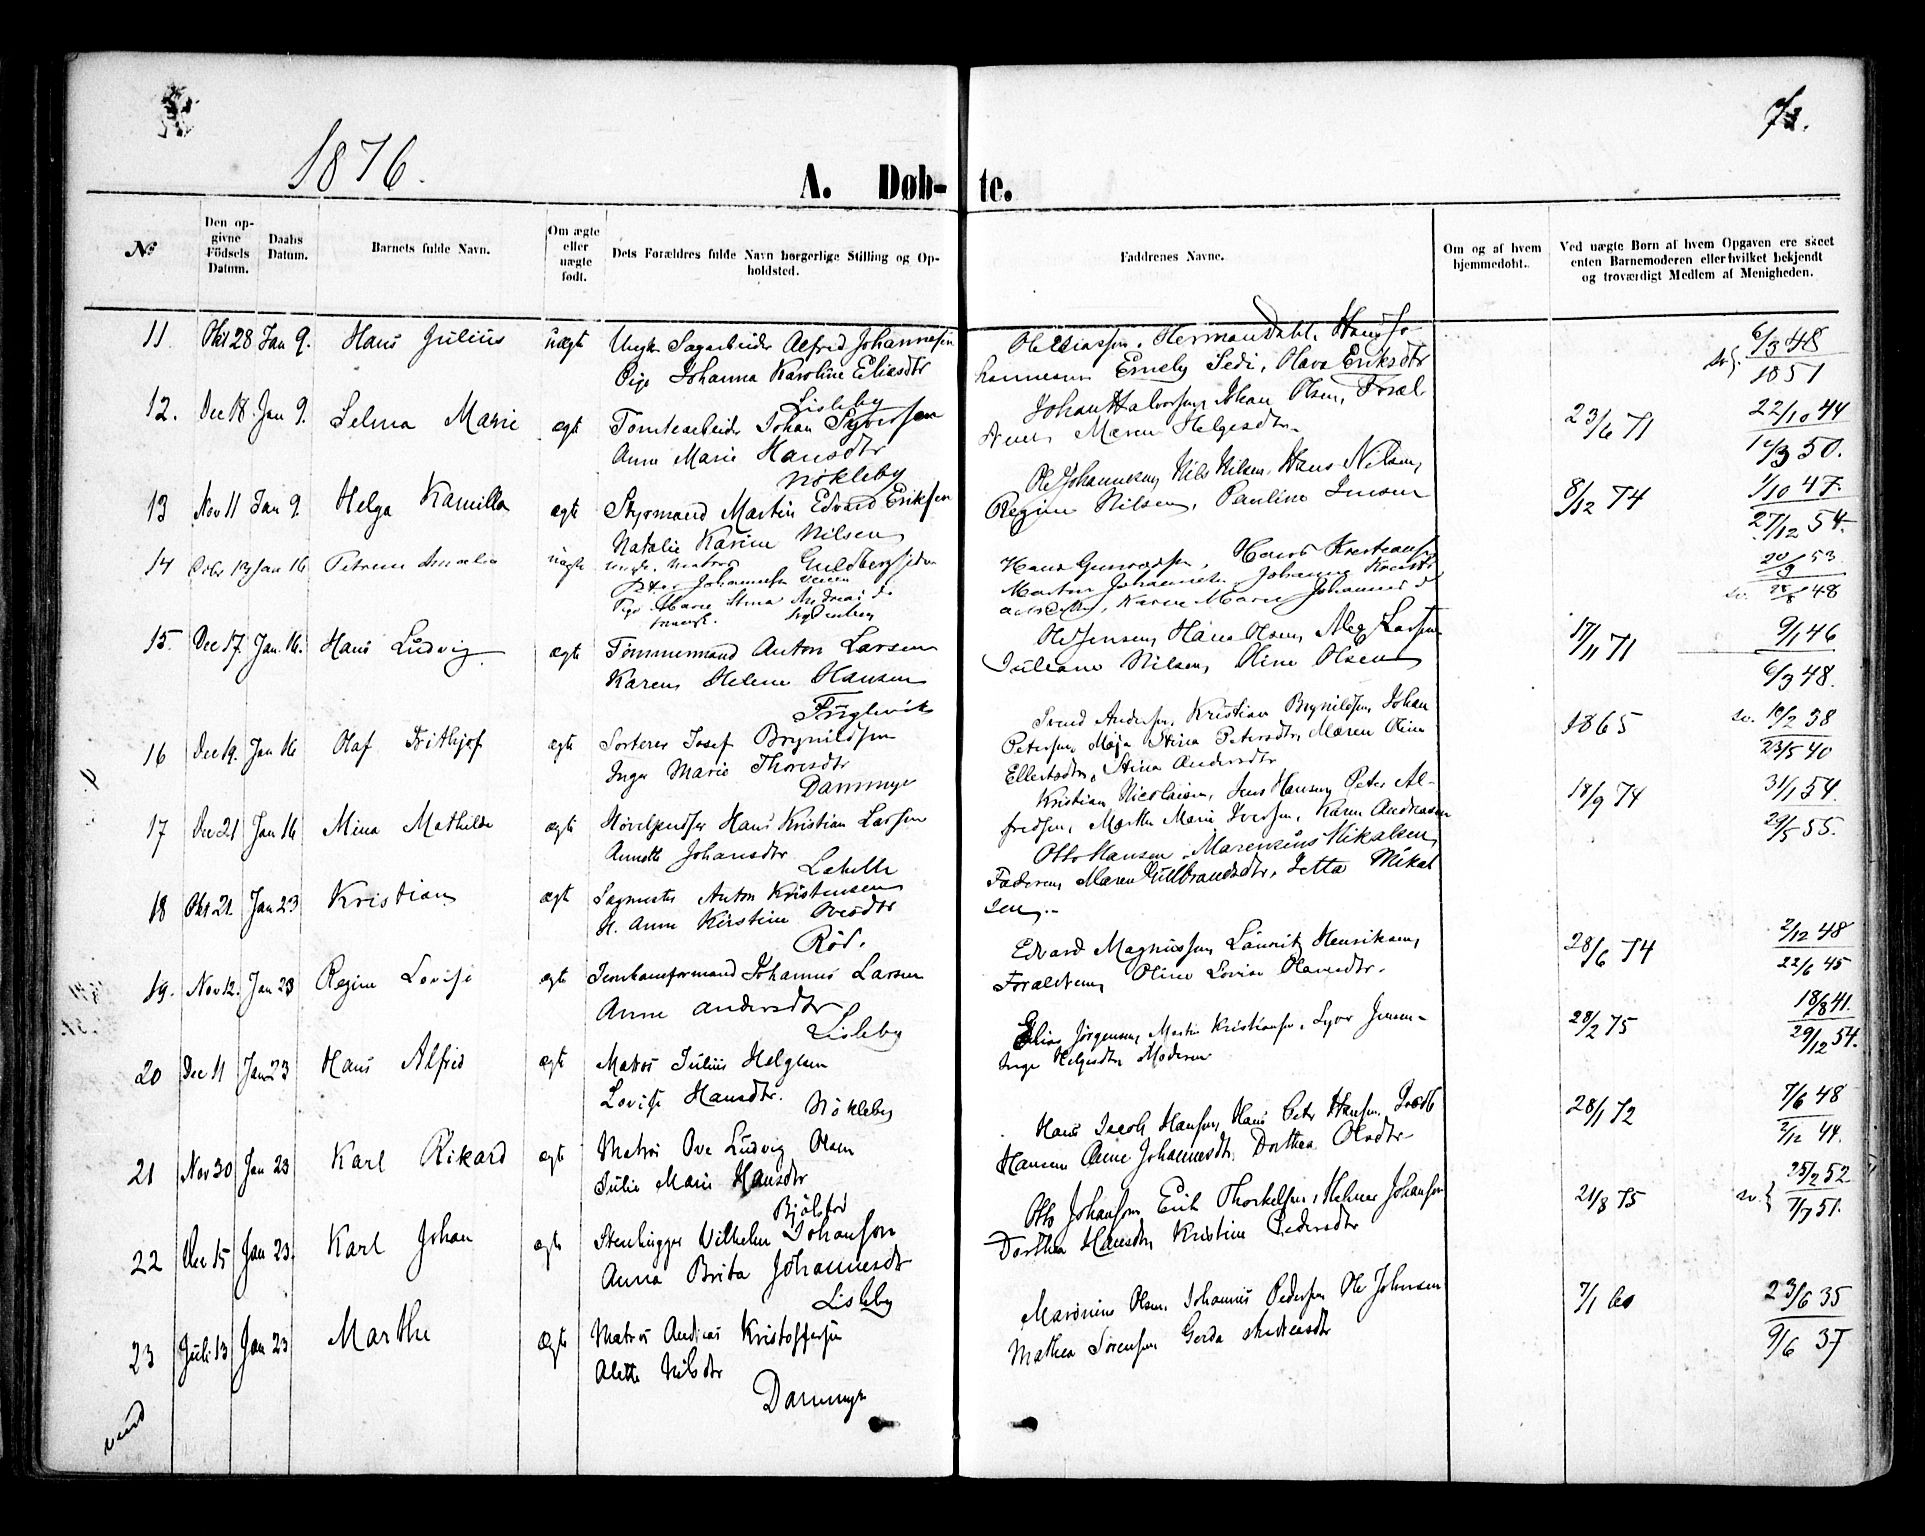 1876.
A. Døb- te.
№
Den op-
givne
Födsels
Datum.
Daabs
Datum.
Barnets fulde Navn.
Om ægte
eller
uægte
født.
Dets Forældres fulde Navn borgerlige Stilling og Op-
holdsted.
Faddrenes Navne.
Om og af hvem
hjemmedøbt.
Ved uægte Børn af hvem Opgaven ere skeet
enten Barnemoderen eller hvilket bekjendt
og troværdigt Medlem af Menigheden.
11. Okt 28 Jan 9. Hans Julius uægte Ungk. Sagarbeider Alfred Johannesen
Pige Johanna Karoline Eliasdtr
Lisleby
Ole Eliassen, Herman Dahl, Hans Jo-
hannesen Emely Sedi, Olava Eriksdtr
6/3 48
1851
12. Dec 18. Jan 9. Selma Marie ægte Tomtearbeider Johan Syversen
Anne Marie Hansdtr
Nökleby
Johan Halvorsen, Johan Olsen, Foræl-
drene Maren Helgesdtr.
23/6 71
22/10 44
12/3 50.
13 Nov 11 Jan 9. Helga Kamilla ægte Styrmand Martin Edvard Eriksen
Natalie Karine Nilsen
Ole Johannesen, Nils Nilsen, Hans Nilsen,
Regine Nilsen, Pauline Jensen
8/12 74
1/10 47.
27/12 54.
14 13 Jan 16 Petrine Amalia uægte
Peter Johannesen
Pige Marie Stina
Hans Gunnarsen, Kristiansen
Karen Marie Johannesd
20/9 53
48
15. Dec 17. Jan. 16. Hans Ludvig ægte Tømmermand Anton Larsen
Karen Helene Hansen
Fuglevik
Ole Jensen, Hans Olsen, Larsen
Juliane Nilsen, Oline Olsen
17/11 71
9/1 46
6/3 48.
16 Dec 19. Jan 16 Olaf Frithjof ægte Sorterer Josef Brynildsen
Inger Marie Thoresdtr
Dammyr
Svend Andersen, Kristian Brynildsen, Johan
Petersen Maja Stina Petersdtr, Maren Oline
Ellertsdtr, Stina Andersdtr
1865
sv. 10/2 38
23/5 40
17 Dec 21 Jan 16 Mina Mathilde ægte Hans Kristian Larsen
Annette Johansdtr
Kristian Nicolaisen, Jens Hansen, Peter Al-
fredsen, Marthe Marie Iversen, Karen Andreasen
18/9 74
31/1 54.
29/5 55.
18 Okt 21. Jan 23 Kristian ægte Sagmester Anton Kristensen
H. Anne Kirstine
Röd.
Otto Hansen, Marensius Mikalsen,
Faderen, Maren Gulbrandsdtr, Jetta Mikal-
sen.
28/6 74
2/12 48
22/6 45
19. Nov 12. Jan 23 Regine Lovise ægte Johannes Larsen
Anne Andersdtr
Lisleby
Edvard Magnussen, Lauritz Henriksen,
Forældrene, Oline Lovise Olavesdtr.
28/2 75
18/8 41.
29/12 54.
20 Dec 11 Jan 23 Hans Alfred ægte Matros Julius Helgesen
Lovise Hansdtr.
Nökleby
Elias Jörgensen, Martin Kristiansen, Syver Jensen
Inge Helgesdtr, Moderen
28/1 72
7/6 48
2/12 44.
21 Nov 30 Jan 23 Karl Rikard ægte Matros Ove Ludvig Olsen
Julie Marie Hansdtr
Hans Jacob Hansen, Hans Peter Hansen,
Hansen Anne Johannesdtr, Dorthea Olsdtr
21/8 75
sv. 25/2 52
7/7 51.
22 Dec 15 Jan 23. Karl Johan ægte Stenhugger Vilhelm Johansson
Anna Brita Johannesdtr
Lisleby
Otto Johansen, Erik Thorkelsen, Helmer Johansen
Dorthea Hansdtr, Kristine Pedersdtr
7/1 60
23/6 35
9/6 37
23 Juli 13 Jan 23 Marthe ægte Matros Andreas Kristoffersen
Alette Nilsdtr
Dammyr
Maronius Olsen, Johannes Pedersen, Ole Johnsen
Mathea Sörensen, Gerda Andreasdtr
vend